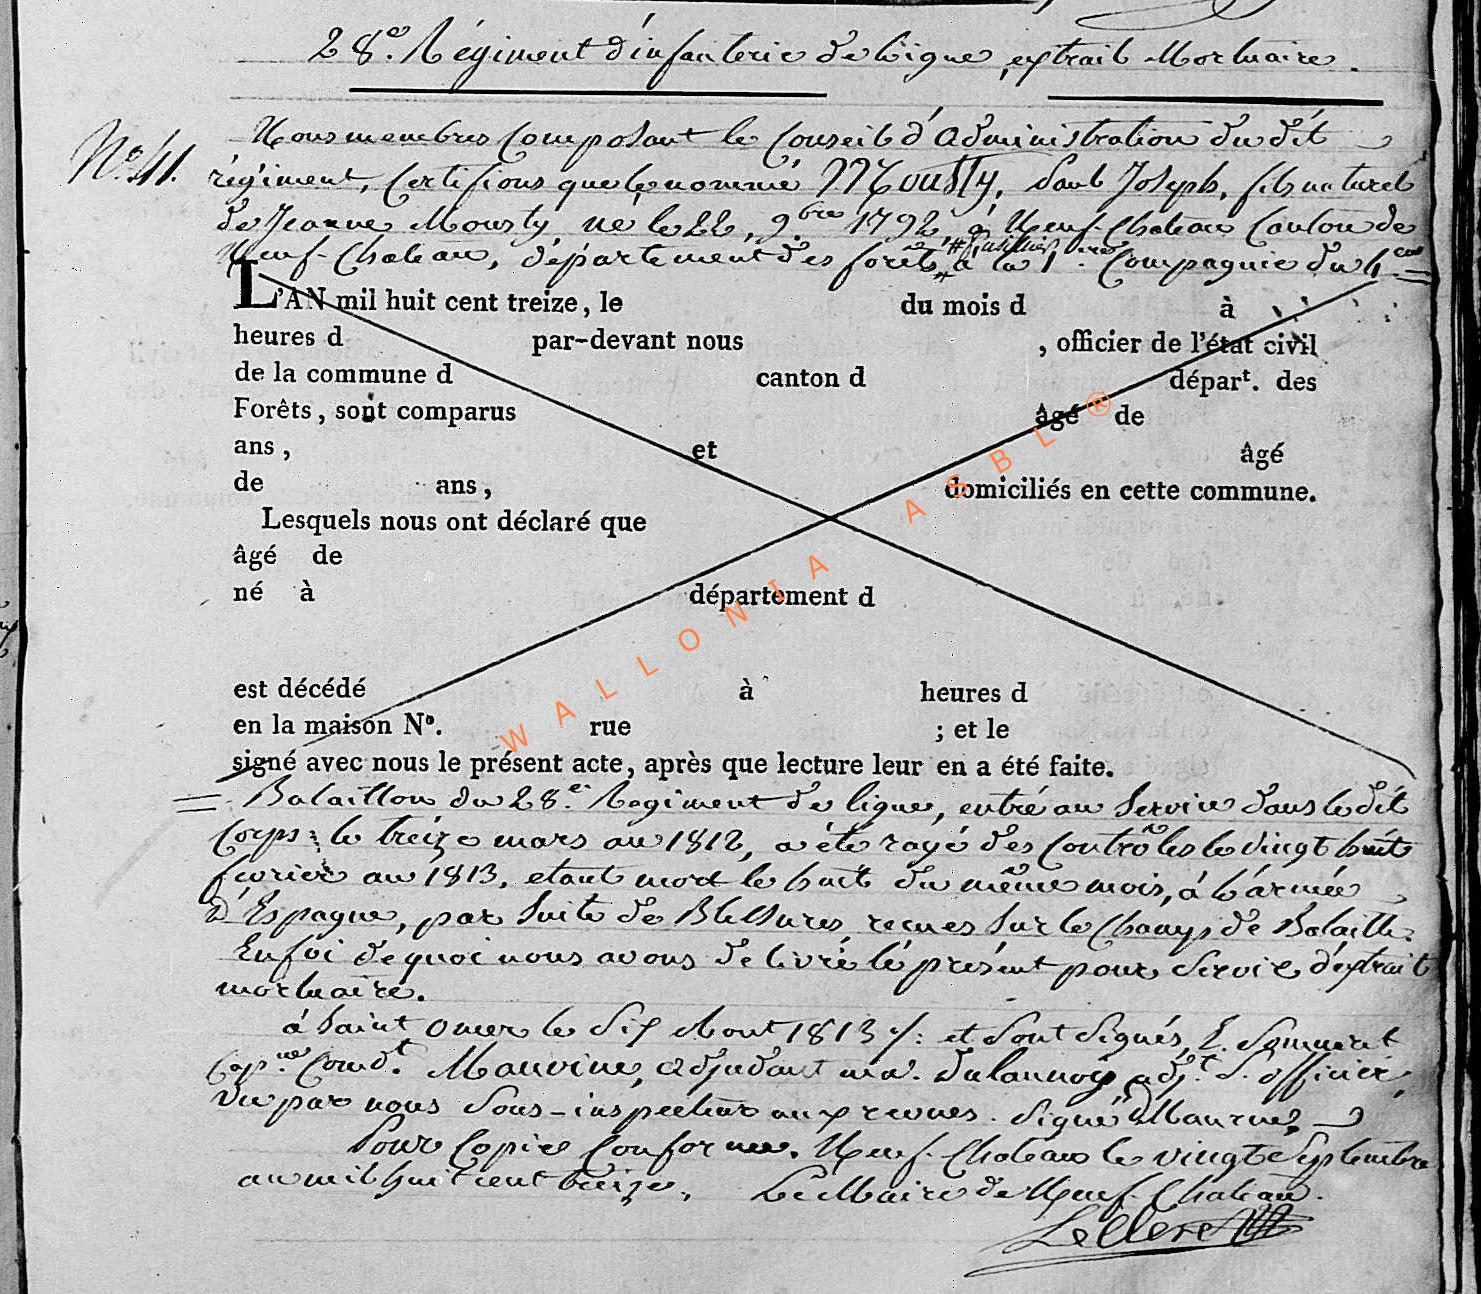 28e. Régiment d'infanterie de ligne, extrait Mortuaire.
No. 41.
Nous membres Composant le Conseil d'Administration du dit
régiment, Certifions que le nommé Mousty, Paul Joseph, fils naturel
de Jeanne Mousty né le 22, 9.bre 1792, à Neuf-Chateau Canton de
Neuf-Chateau, département des forêts, # fusilier # à la 1ere Compagnie du 4eme =
L'AN mil huit cent treize, le du mois d à
heures d par-devant nous , officier de l'état civil
de la commune d canton d départ. des
Forêts, sont comparus âgé de
ans, et âgé
de ans, domiciliés en cette commune.
Lesquels nous ont déclaré que
âgé de
né à département d
est décédé à heures d
en la maison No. rue ; et le
signé avec nous le présent acte, après que lecture leur en a été faite.
= Bataillon du 28.e Regiment de ligne, entré au Service dans le dit
Corps; le treize mars an 1812, a été rayé des Contrôles le vingt huit
fevrier an 1813, etant mort le huit du même mois, à l'armée
d'Espagne, par Suite de Blessures recues Sur le Champ de Bataille.
En foi de quoi nous avons delivré le présent pour Servir d'extrait
mortuaire.
à Saint Omer le Six Aout 1813 /: et Sont Signés,
Cap.ne Comdt. Mauvine, adjudant Dulannoy adjt. S. officier,
Vu par nous Sous-inspecteur aux revues. Signé
Pour Copie Conforme. Neuf-Chateau le vingt Septembre
an mil huit cent treize. Le Maire de Neuf-Chateau.
LeClerc
WALLONIA ASBL ®